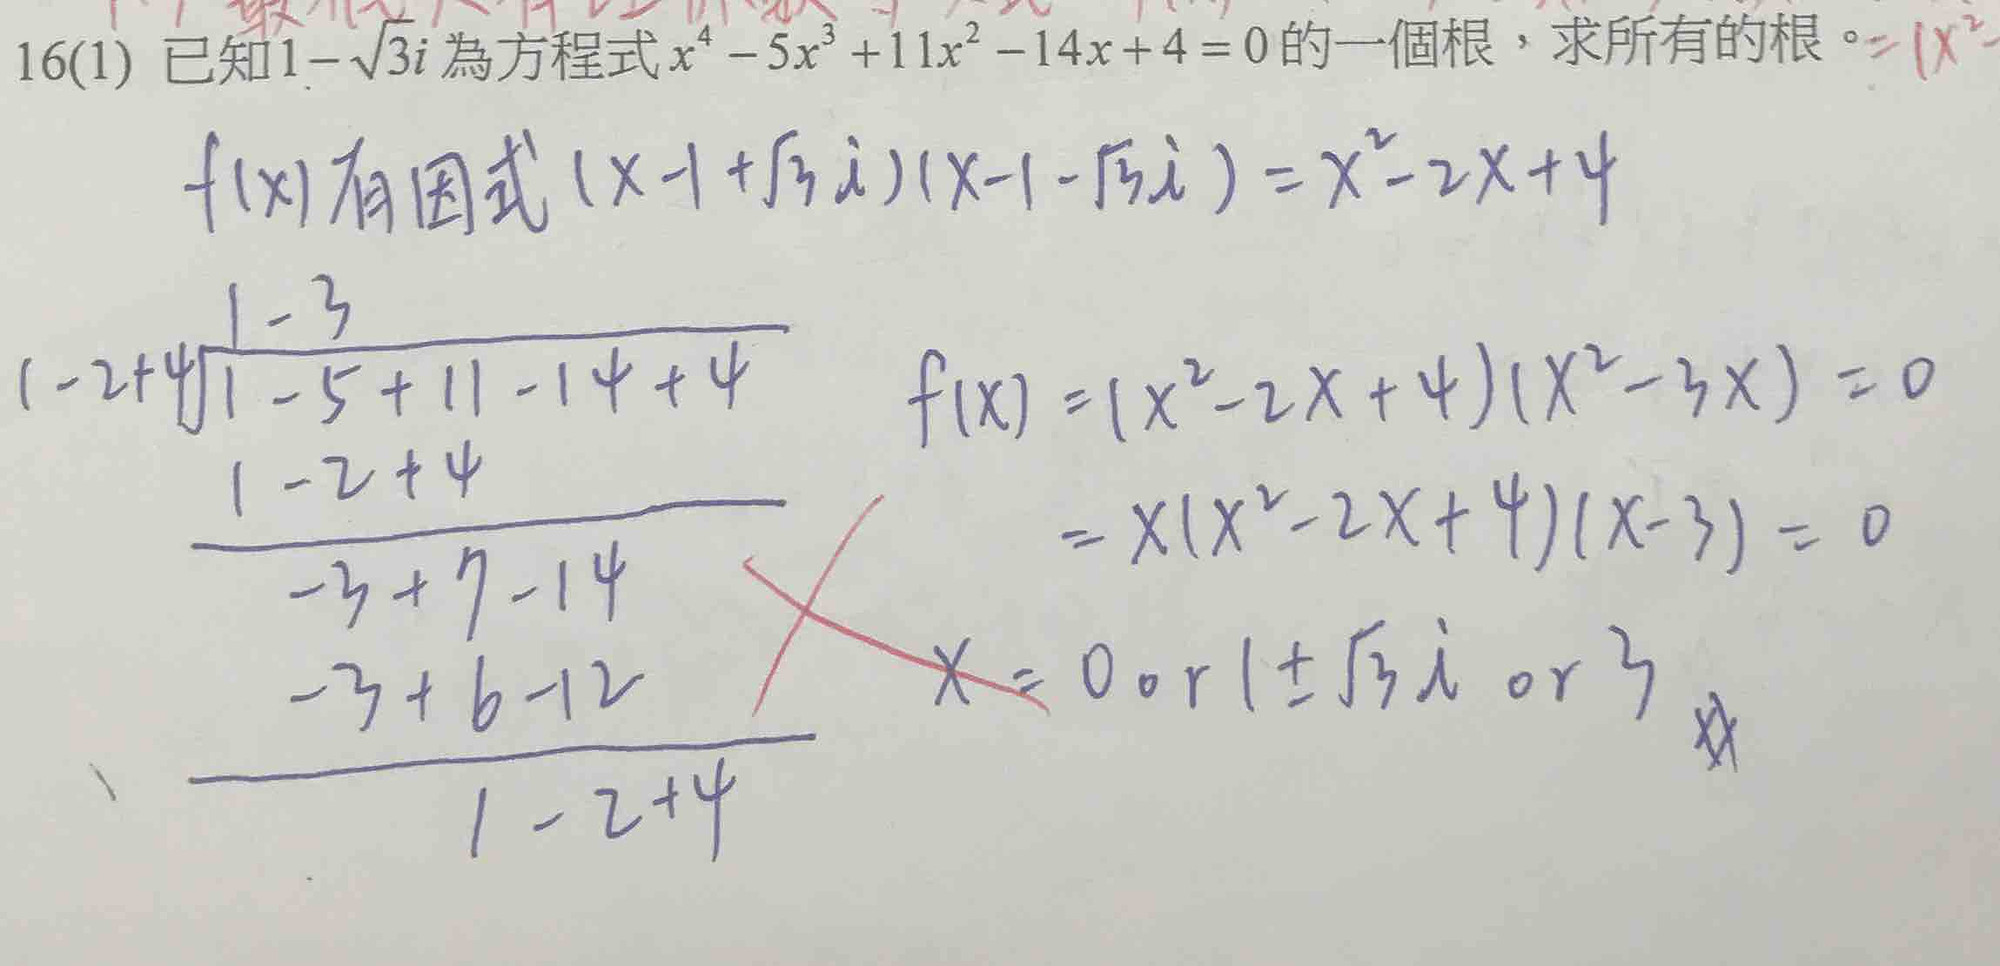 16(1) 已知1-√3i 為方程式 x⁴-5x³+11x²-14x+4=0 的一個根，求所有的根。=(x²-
f(x) 有因式 (x-1+√3i)(x-1-√3i) = x²-2x+4
1-3
1-2+4√1-5+11-14+4
1-2+4
-3+7-14
-3+6-12
1-2+4
f(x) = (x²-2x+4)(x²-3x) = 0
= x(x²-2x+4)(x-3) = 0
x = 0 or 1±√3i or 3